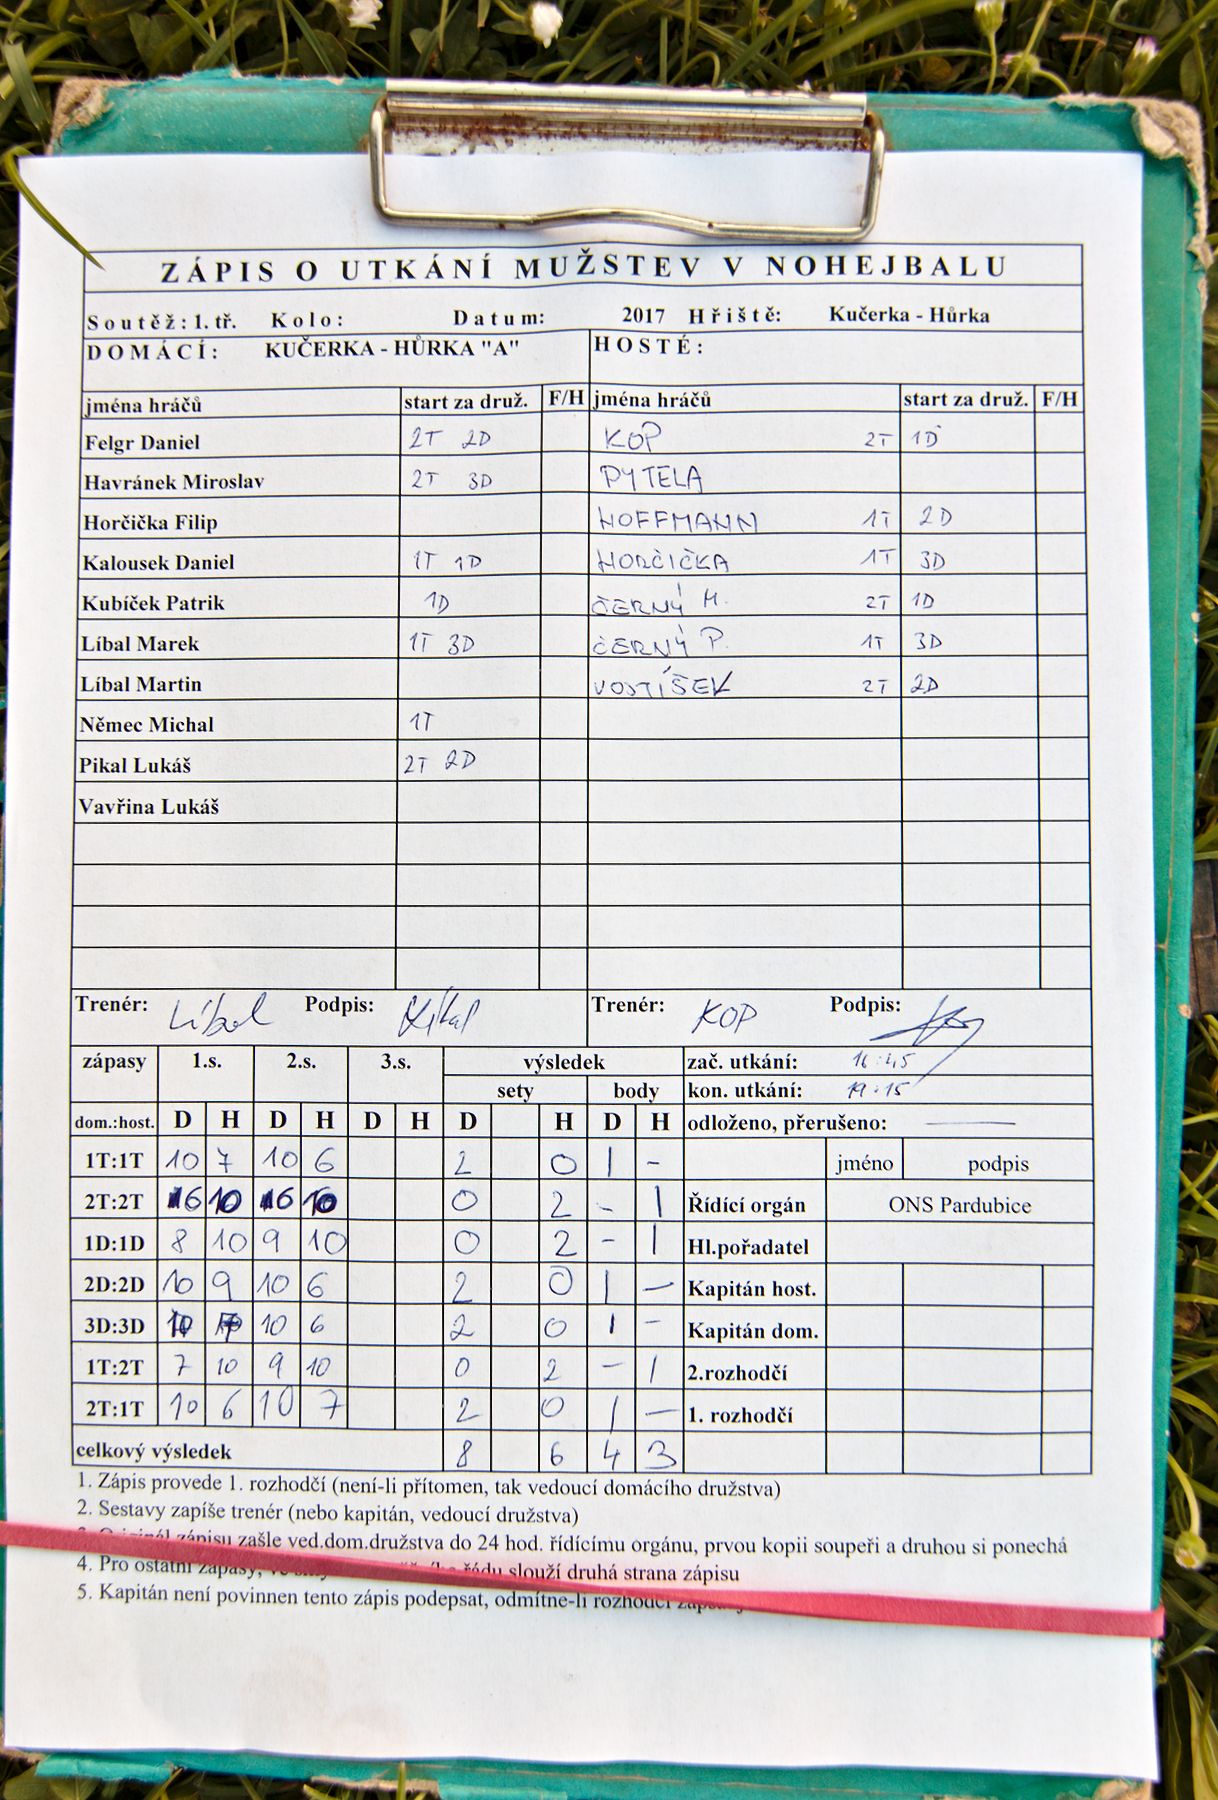 ZÁPIS O UTKÁNÍ MUŽSTEV V NOHEJBALU
Soutěž: 1. tř. Kolo: Datum: 2017 Hřiště: Kučerka - Hůrka
DOMÁCÍ: KUČERKA - HŮRKA "A" HOSTÉ:
jména hráčů start za druž. F/H jména hráčů start za druž. F/H
Felgr Daniel 2T 2D KOP 2T 1D
Havránek Miroslav 2T 3D PYTELA
Horčička Filip HOFFMANN 1T 2D
Kalousek Daniel 1T 1D HORČIČKA 1T 3D
Kubíček Patrik 1D ČERNÝ M. 2T 1D
Líbal Marek 1T 3D ČERNÝ P. 1T 3D
Líbal Martin VOSTÍŠEK 2T 2D
Němec Michal 1T
Pikal Lukáš 2T 2D
Vavřina Lukáš
Trenér: Líbal Podpis: Trenér: KOP Podpis:
zápasy 1.s. 2.s. 3.s. výsledek zač. utkání: 16:45
sety body kon. utkání: 19:15
dom.:host. D H D H D H D H D H odloženo, přerušeno: —
1T:1T 10 7 10 6 2 0 1 - jméno podpis
2T:2T 6 10 6 10 0 2 - 1 Řídící orgán ONS Pardubice
1D:1D 8 10 9 10 0 2 - 1 Hl.pořadatel
2D:2D 10 9 10 6 2 0 1 - Kapitán host.
3D:3D 10 7 10 6 2 0 1 - Kapitán dom.
1T:2T 7 10 9 10 0 2 - 1 2.rozhodčí
2T:1T 10 6 10 7 2 0 1 - 1. rozhodčí
celkový výsledek 8 6 4 3
1. Zápis provede 1. rozhodčí (není-li přítomen, tak vedoucí domácího družstva)
2. Sestavy zapíše trenér (nebo kapitán, vedoucí družstva)
zápisu zašle ved.dom.družstva do 24 hod. řídícímu orgánu, prvou kopii soupeři a druhou si ponechá
4. Pro ostatní zápasy, řádu slouží druhá strana zápisu
5. Kapitán není povinnen tento zápis podepsat, odmítne-li rozhodčí